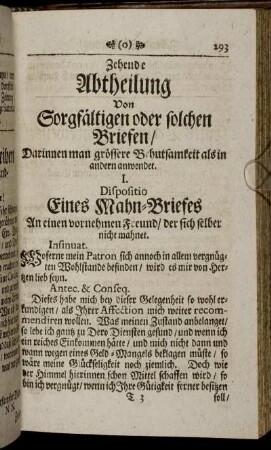 (o) 293
Zehende
Abtheilung
Von
Sorgfältigen oder solchen
Briefen/
Darinnen man grössere Behutsamkeit als in
andern anwendet.
I.
Dispositio
Eines Mahn-Briefes
An einen vornehmen Freund/ der sich selber
nicht mahnet.
Insinuat.
Woferne mein Patron sich annoch in allem vergnüg-
ten Wohlstande befinden/ wird es mir von Her-
tzen lieb seyn.
Antec. & Conseq.
Dieses habe mich bey dieser Gelegenheit so wohl er-
kundigen/ als Ihrer Affection mich weiter recom-
mendiren wollen. Was meinen Zustand anbelanget/
so lebe ich gantz zu Dero Diensten gesund/ und wenn ich
ein reiches Einkommen hätte/ und mich nicht dann und
wann wegen eines Geld-Mangels beklagen müste/ so
wäre meine Glückseligkeit noch ziemlich. Doch wie
der Himmel hierinnen schon Mittel schaffen wird/ so
bin ich vergnügt/ wenn ich Ihre Gütigkeit ferner besitzen
T 3 soll/